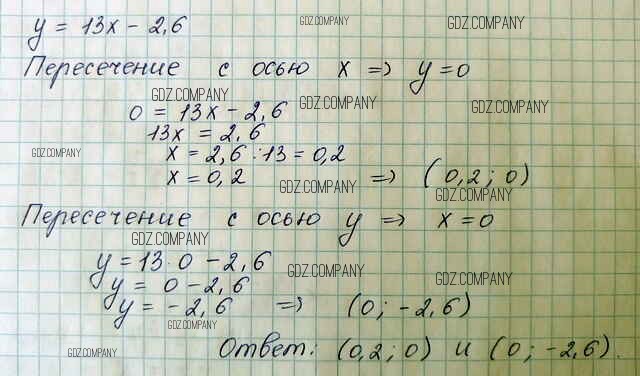 GDZ.COMPANY GDZ.COMPANY
y = 13x - 2,6
Пересечение с осью x => y=0
GDZ.COMPANY GDZ.COMPANY GDZ.COMPANY
0 = 13x - 2,6
13x = 2,6
GDZ.COMPANY
x = 2,6 : 13 = 0,2
x = 0,2 => (0,2; 0)
GDZ.COMPANY GDZ.COMPANY
Пересечение с осью y => x = 0
GDZ.COMPANY
y = 13 · 0 - 2,6
GDZ.COMPANY GDZ.COMPANY
y = 0 - 2,6
y = -2,6 => (0; -2,6)
GDZ.COMPANY
Ответ: (0,2; 0) и (0; -2,6).
GDZ.COMPANY